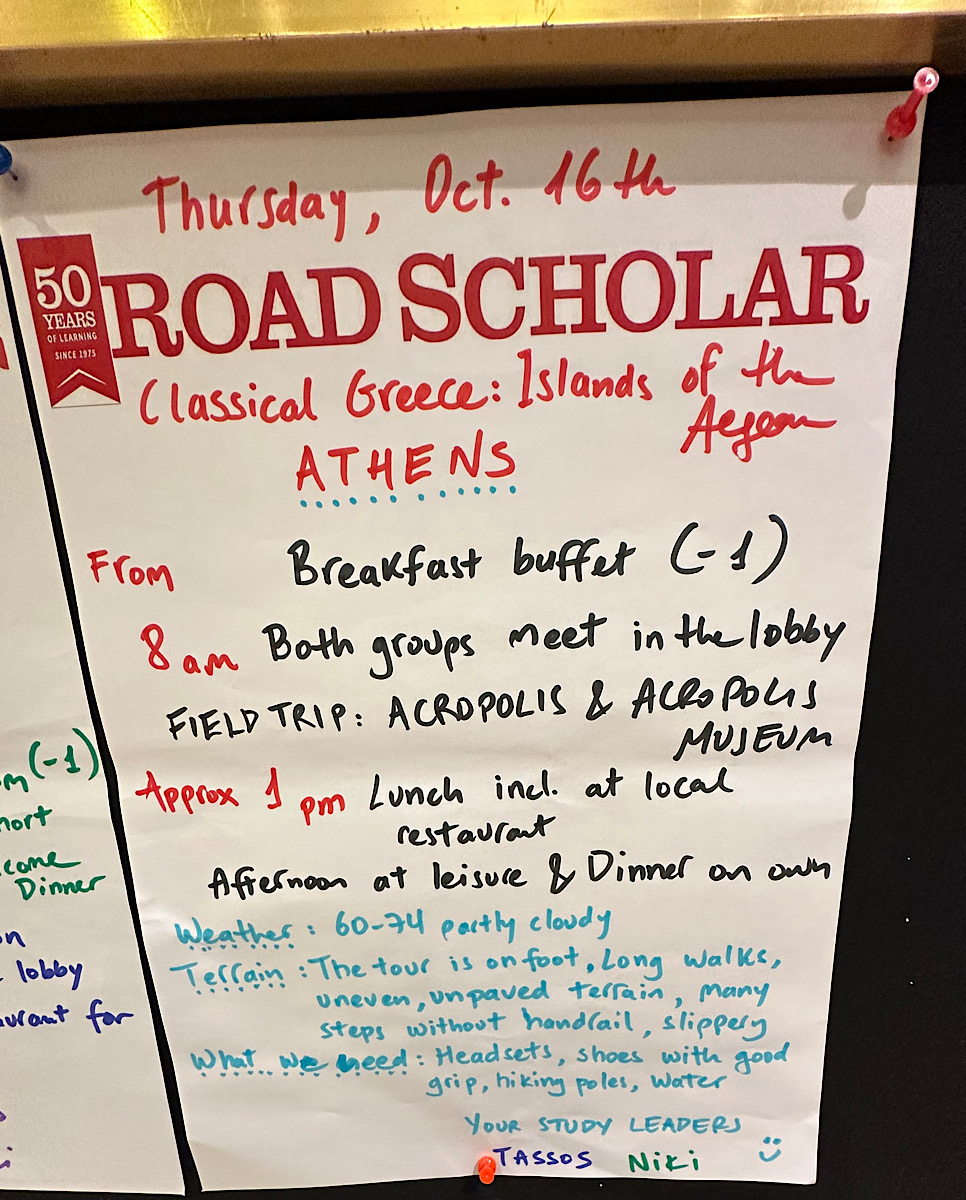 Thursday, Oct. 16th
50
YEARS
OF LEARNING
SINCE 1975
ROAD SCHOLAR
Classical Greece: Islands of the
Aegean
ATHENS
From Breakfast buffet (-1)
8 am Both groups meet in the lobby
FIELD TRIP: ACROPOLIS & ACROPOLIS
MUSEUM
Approx 1 pm Lunch incl. at local
restaurant
Afternoon at leisure & Dinner on own
Weather: 60-74 partly cloudy
Terrain: The tour is on foot, Long walks,
uneven, unpaved terrain, many
steps without handrail, slippery
What we need: Headsets, shoes with good
grip, hiking poles, water
YOUR STUDY LEADERS
TASSOS Niki
(-1)
Dinner
lobby
for